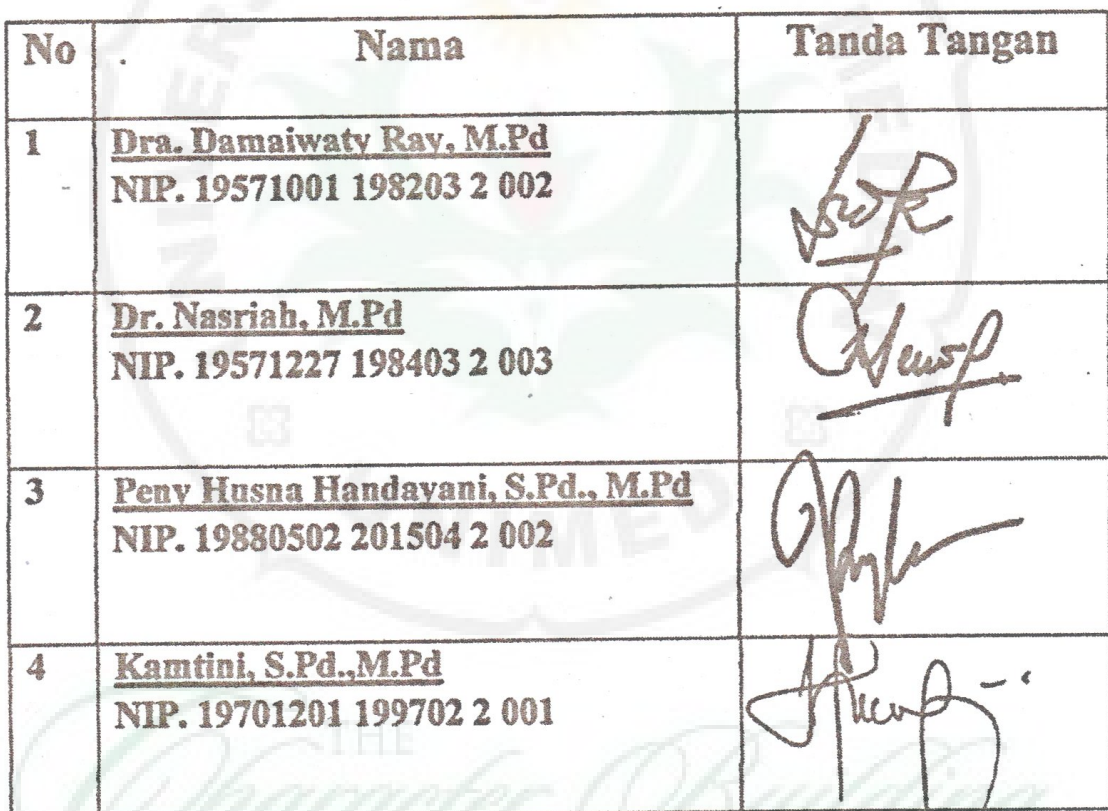 No Nama Tanda Tangan
1 Dra. Damaiwaty Ray, M.Pd
NIP. 19571001 198203 2 002
2 Dr. Nasriah, M.Pd
NIP. 19571227 198403 2 003
3 Peny Husna Handayani, S.Pd., M.Pd
NIP. 19880502 201504 2 002
4 Kamtini, S.Pd.,M.Pd
NIP. 19701201 199702 2 001
UNIMED
THE
Character Building